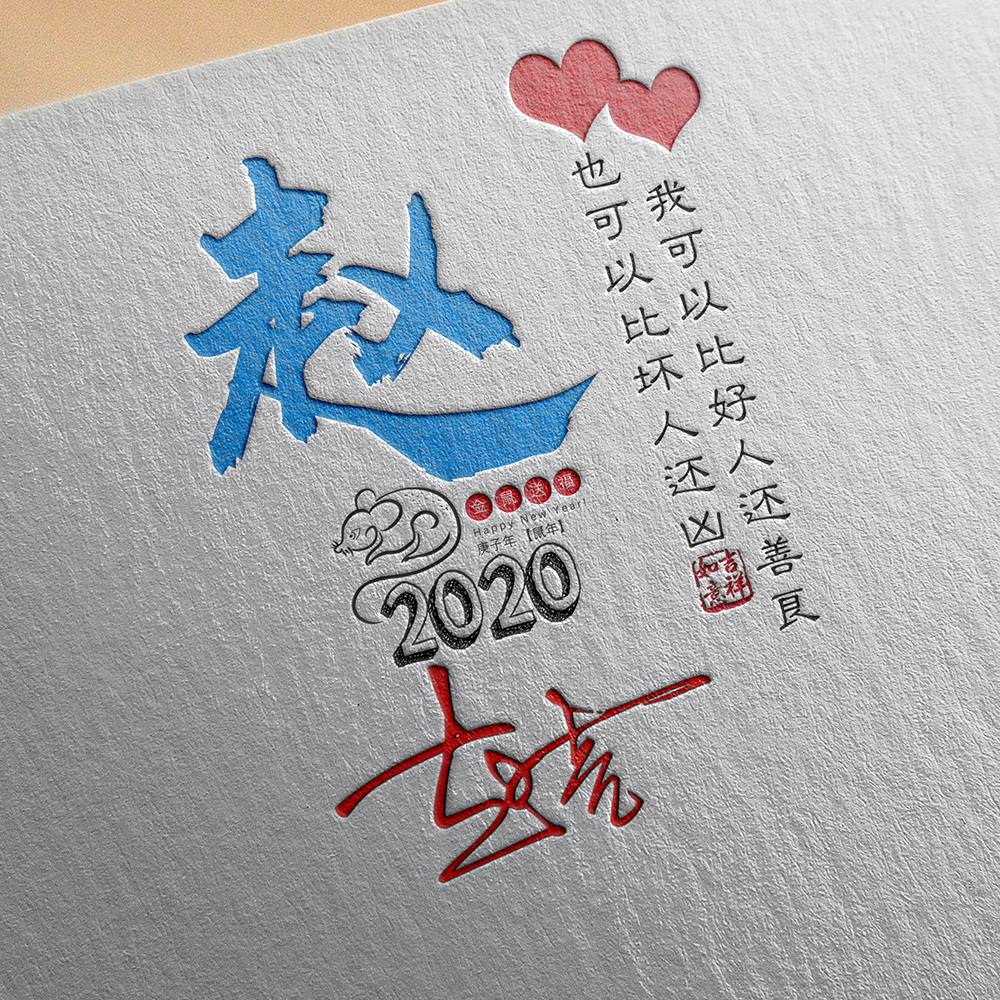 赵
我可以比好人还善良
也可以比坏人还凶
吉祥如意
金鼠送福
Happy New Year!
庚子年【鼠年】
2020